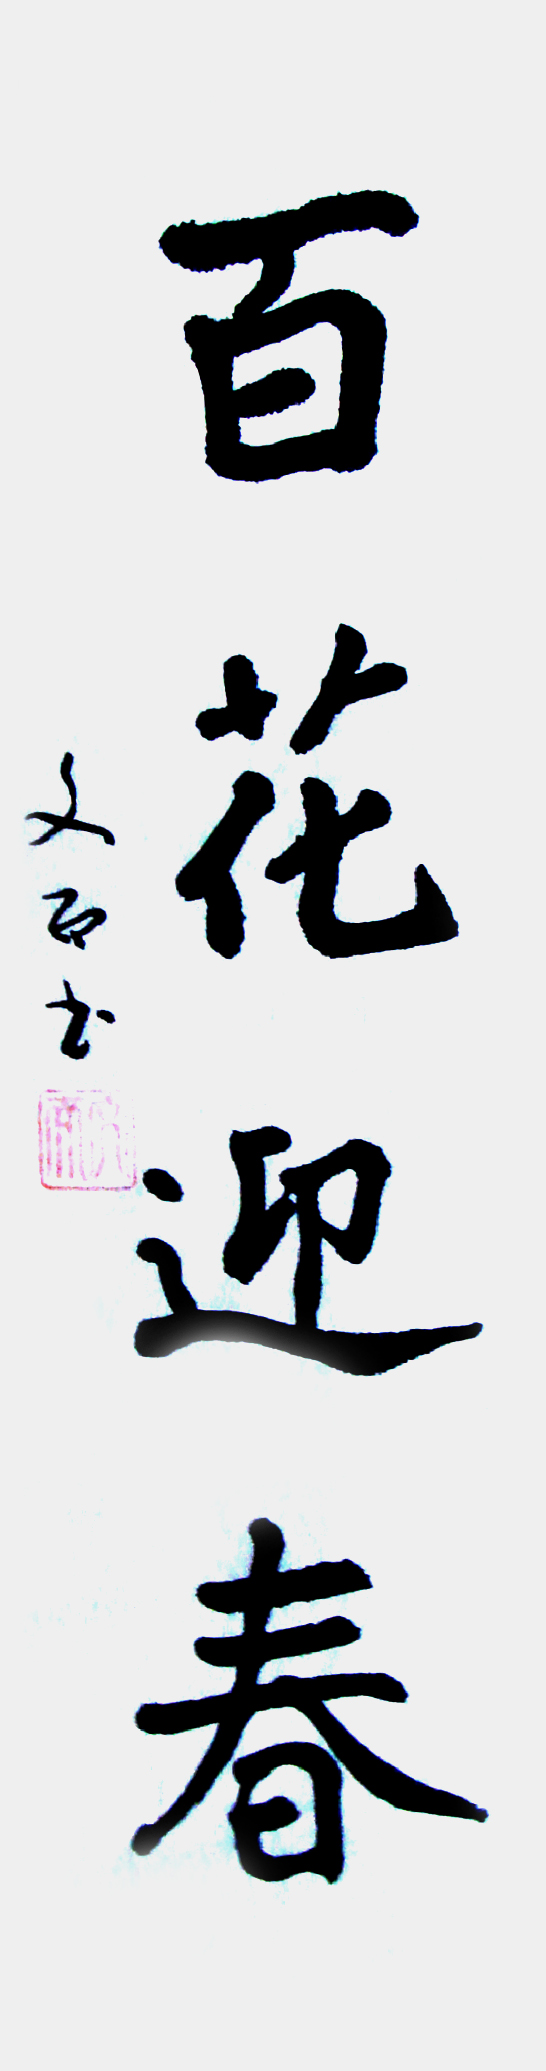 百花迎春
文石书